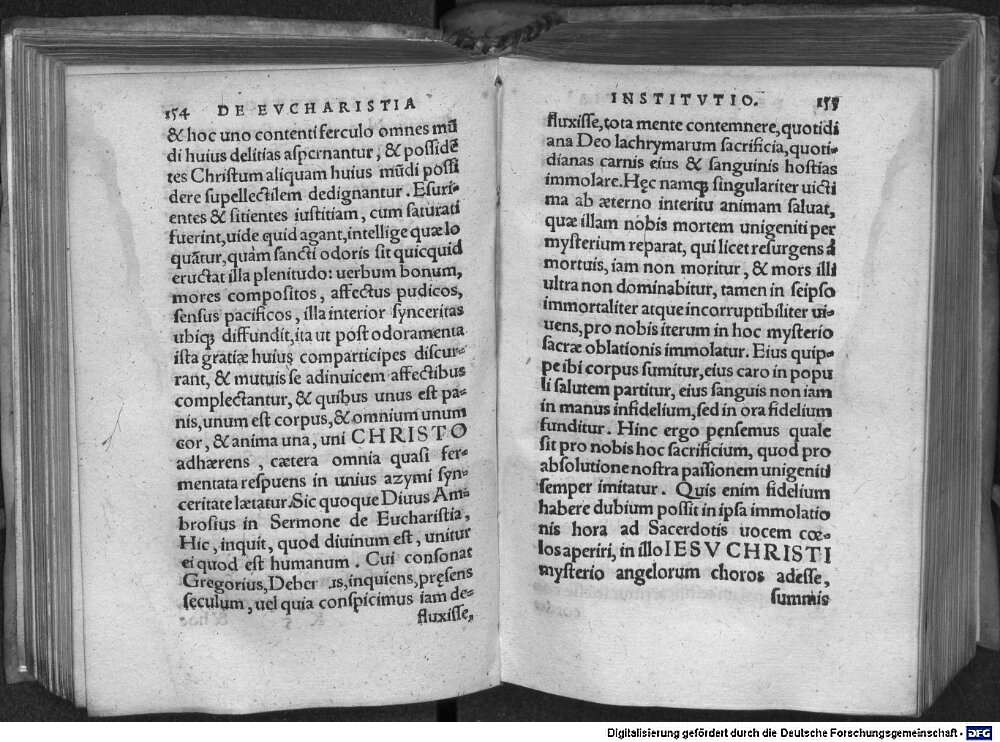 154 DE EVCHARISTIA
& hoc uno contenti ferculo omnes mū
di huius delitias aspernantur, & possidē
tes Christum aliquam huius mūdi possi
dere supellectilem dedignantur. Esuri-
entes & sitientes iustitiam, cum saturati
fuerint, uide quid agant, intellige quæ lo
quātur, quàm sancti odoris sit quicquid
eructat illa plenitudo: uerbum bonum,
mores compositos, affectus pudicos,
sensus pacificos, illa interior synceritas
ubiqꝫ diffundit, ita ut post odoramenta
ista gratiæ huius comparticipes discur-
rant, & mutuis se adinuicem affectibus
complectantur, & quibus unus est pa-
nis, unum est corpus, & omnium unum
cor, & anima una, uni CHRISTO
adhærens, cætera omnia quasi fer-
mentata respuens in unius azymi syn-
ceritate lætatur. Sic quoque Diuus Am-
brosius in Sermone de Eucharistia,
Hic, inquit, quod diuinum est, unitur
ei quod est humanum. Cui consonat
Gregorius, Deber us, inquiens, pręsens
seculum, uel quia conspicimus iam de-
fluxisse,
INSTITVTIO. 155
fluxisse, tota mente contemnere, quotidi
ana Deo lachrymarum sacrificia, quoti-
dianas carnis eius & sanguinis hostias
immolare. Hęc namqꝫ singulariter uicti
ma ab æterno interitu animam saluat,
quæ illam nobis mortem unigeniti per
mysterium reparat, qui licet resurgens á
mortuis, iam non moritur, & mors illi
ultra non dominabitur, tamen in seipso
immortaliter atque incorruptibiliter ui-
uens, pro nobis iterum in hoc mysterio
sacræ oblationis immolatur. Eius quip-
pe ibi corpus sumitur, eius caro in popu
li salutem partitur, eius sanguis non iam
in manus infidelium, sed in ora fidelium
funditur. Hinc ergo pensemus quale
sit pro nobis hoc sacrificium, quod pro
absolutione nostra passionem unigeniti
semper imitatur. Quis enim fidelium
habere dubium possit in ipsa immolatio
nis hora ad Sacerdotis uocem cœ-
los aperiri, in illo IESV CHRISTI
mysterio angelorum choros adesse,
summis
Digitalisierung gefördert durch die Deutsche Forschungsgemeinschaft - DFG